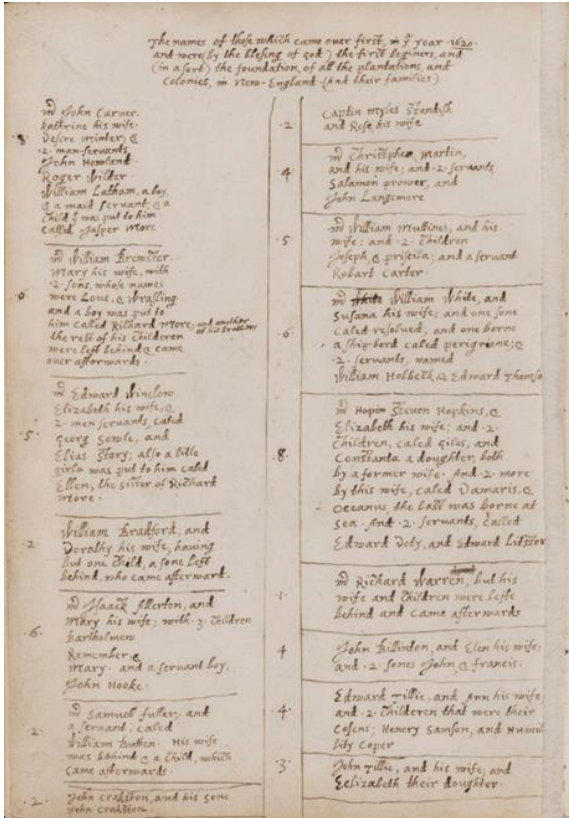 The names of those which came over first, in yͤ year 1620.
and were (by the blesing of god) the first beginers, and
(in a sort) the foundation, of all the plantations, and
Colonies, in New-England. (And their families)
·8·
mͬ John Carver.
Kathrine his wife.
Desire Minter; &
·2· man-servants
John Howland
Roger Wilder
William Latham, a boy.
& a maid servant; & a
Child yͭ was put to him
called Jasper More
·6·
mͬ William Brewster.
Mary his wife, with
·2· sons, whose names
were Love, & Wrasling.
and a boy was put to
him called Richard More; and another
of his brothers
the rest of his Children
were left behind & came
over afterwards.
·5·
mͬ Edward Winslow
Elizabeth his wife, &
2· men servants, caled
Georg Sowle, and
Elias Story; also a litle
girle was put to him caled
Ellen, the sister of Richard
More.
·2·
William Bradford, and
Dorothy his wife, having
but one Child, a sone left
behind, who came afterward.
·6·
mͬ Isaack Allerton, and
Mary his wife; with ·3· Children
Bartholmew
Remember, &
Mary. and a servant boy,
John Hooke.
·2·
mͬ Samuell Fuller; and
a servant, caled
William Butten. His wife
was behind & a Child, which
came afterwards.
·2·
John Crakston, and his sone
John Crakston.
·2·
Captin Myles Standish
and Rose, his wife
·4·
mͬ Christpher Martin,
and his wife; and ·2· servants,
Salamon prower, and
John Langemore
·5·
mͬ William Mullines, and his
wife; and ·2· Children
Joseph, & priscila; and a servant
Robart Carter.
·6·
mͬ White William White, and
Susana his wife; and one sone
caled resolved, and one borne
a ship-bord caled perigriene; &
·2· servants, named
William Holbeck, & Edward Thomson
·8·
mͬ Hopin Steven Hopkins, &
Elizabeth his wife; and ·2·
Children, caled Giles, and
Constanta a doughter, both
by a former wife. And ·2· more
by this wife, caled Damaris, &
Oceanus, the last was borne at
sea. And ·2· servants, called
Edward Doty, and Edward Litster.
·1·
mͬ Richard Warren, but his
wife and Children were lefte
behind and came afterwards
·4·
John Billinton, and Elen his wife;
and ·2· sones John, & Francis.
·4·
Edward Tillie, and Ann his wife;
and ·2· Childeren that were their
Cosens; Henery Samson, and Humil
lity Coper
·3·
John Tillie, and his wife; and
Eelizabeth their doughter.